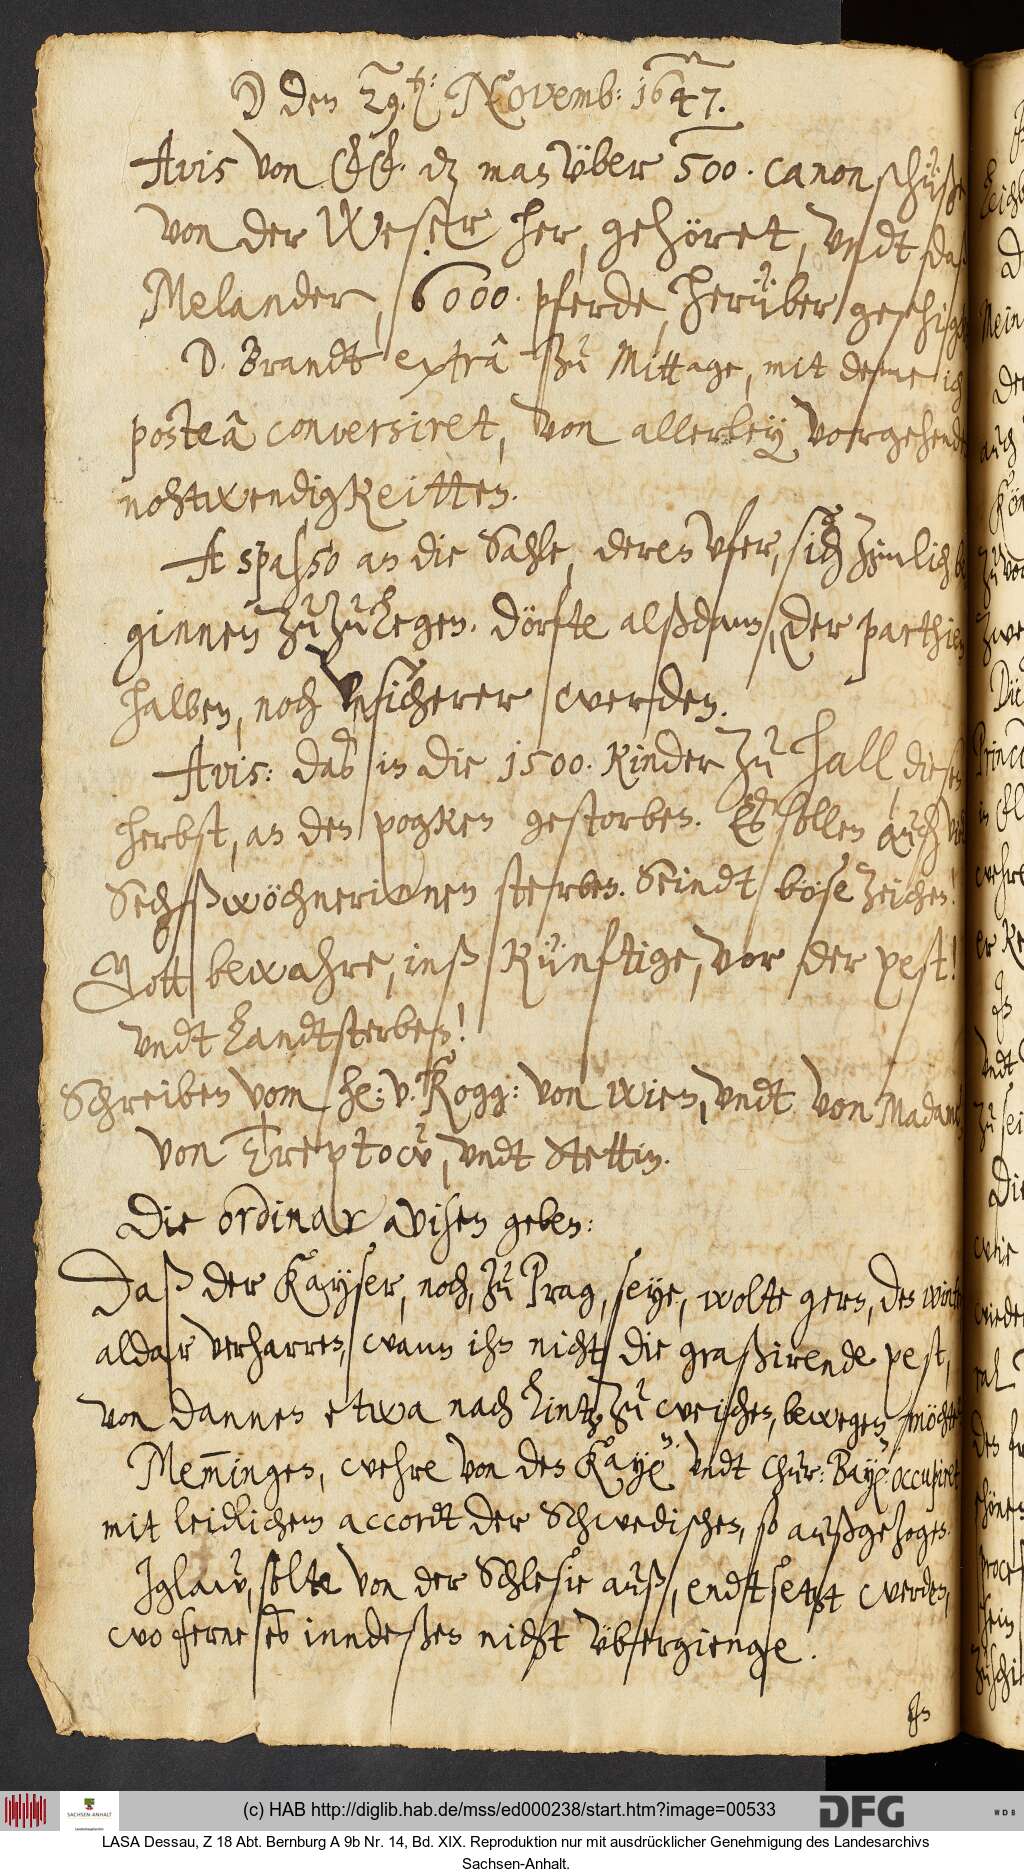 D den 29.t: Novemb: 1647.
Avis von dz man über 500. canonschüße
von der Weser her, gehöret, undt daß
Melander, 6000. pferde, herüber geschigkt
D. Brandt extrâ zu Mittage, mit deme ich
posteâ conversiret, von allerley vorgehenden
nohtwendigkeitten.
A spasso an die Sahle, deren ufer, sich zimlich be
ginnen zuzulegen. dörfte alßdann, der parthien
halben, noch unsicherer werden.
Avis: daß in die 1500. Kinder zu Hall diesen
herbst, an den pogken gestorben. Es sollen auch viel
Sechßwöchnerinnen sterben. Seindt böse zeichen!
Gott bewahre, inß künftige, vor der pest!
undt Landtsterben!
Schreiben vom he: v. Rogg: von Wien, undt von Madame
von Treptow, undt Stettin.
Die ordinar avisen geben:
Daß der Kayser, noch, zu Prag, seye, wolte gern, des winters
aldar verharren, wann ihn nicht die graßirende pest,
von dannen etwa nach Lintz zu weichen, bewegen möchte
Memingen, wehre von den Kayn. undt Chur: Bayn. occupiret
mit leidlichem accordt der Schwedischen, so außgezogen.
Iglaw, solte von der Schlesie auß, endtsetzt werden,
wo ferne es inndeßen nicht übergienge.
Es
(c) HAB http://diglib.hab.de/mss/ed000238/start.htm?image=00533
DFG
WDB
SACHSEN-ANHALT
LASA Dessau, Z 18 Abt. Bernburg A 9b Nr. 14, Bd. XIX. Reproduktion nur mit ausdrücklicher Genehmigung des Landesarchivs
Sachsen-Anhalt.